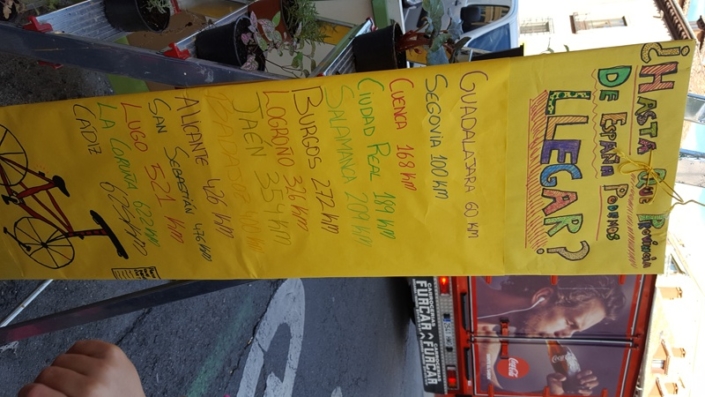 ¿HASTA QUE PROVINCIA
DE ESPAÑA PODEMOS
LLEGAR?
GUADALAJARA 60 KM
SEGOVIA 100 KM
CUENCA 168 KM
CIUDAD REAL 189 KM
SALAMANCA 209 KM
BURGOS 272 KM
LOGROÑO 326 KM
JAÉN 354 KM
BADAJOZ 400 KM
ALICANTE 426 KM
SAN SEBASTIÁN 476 KM
LUGO 521 KM
LA CORUÑA 622 KM
CADIZ 625 KM
FURCAR
FURCAR
Coca-Cola